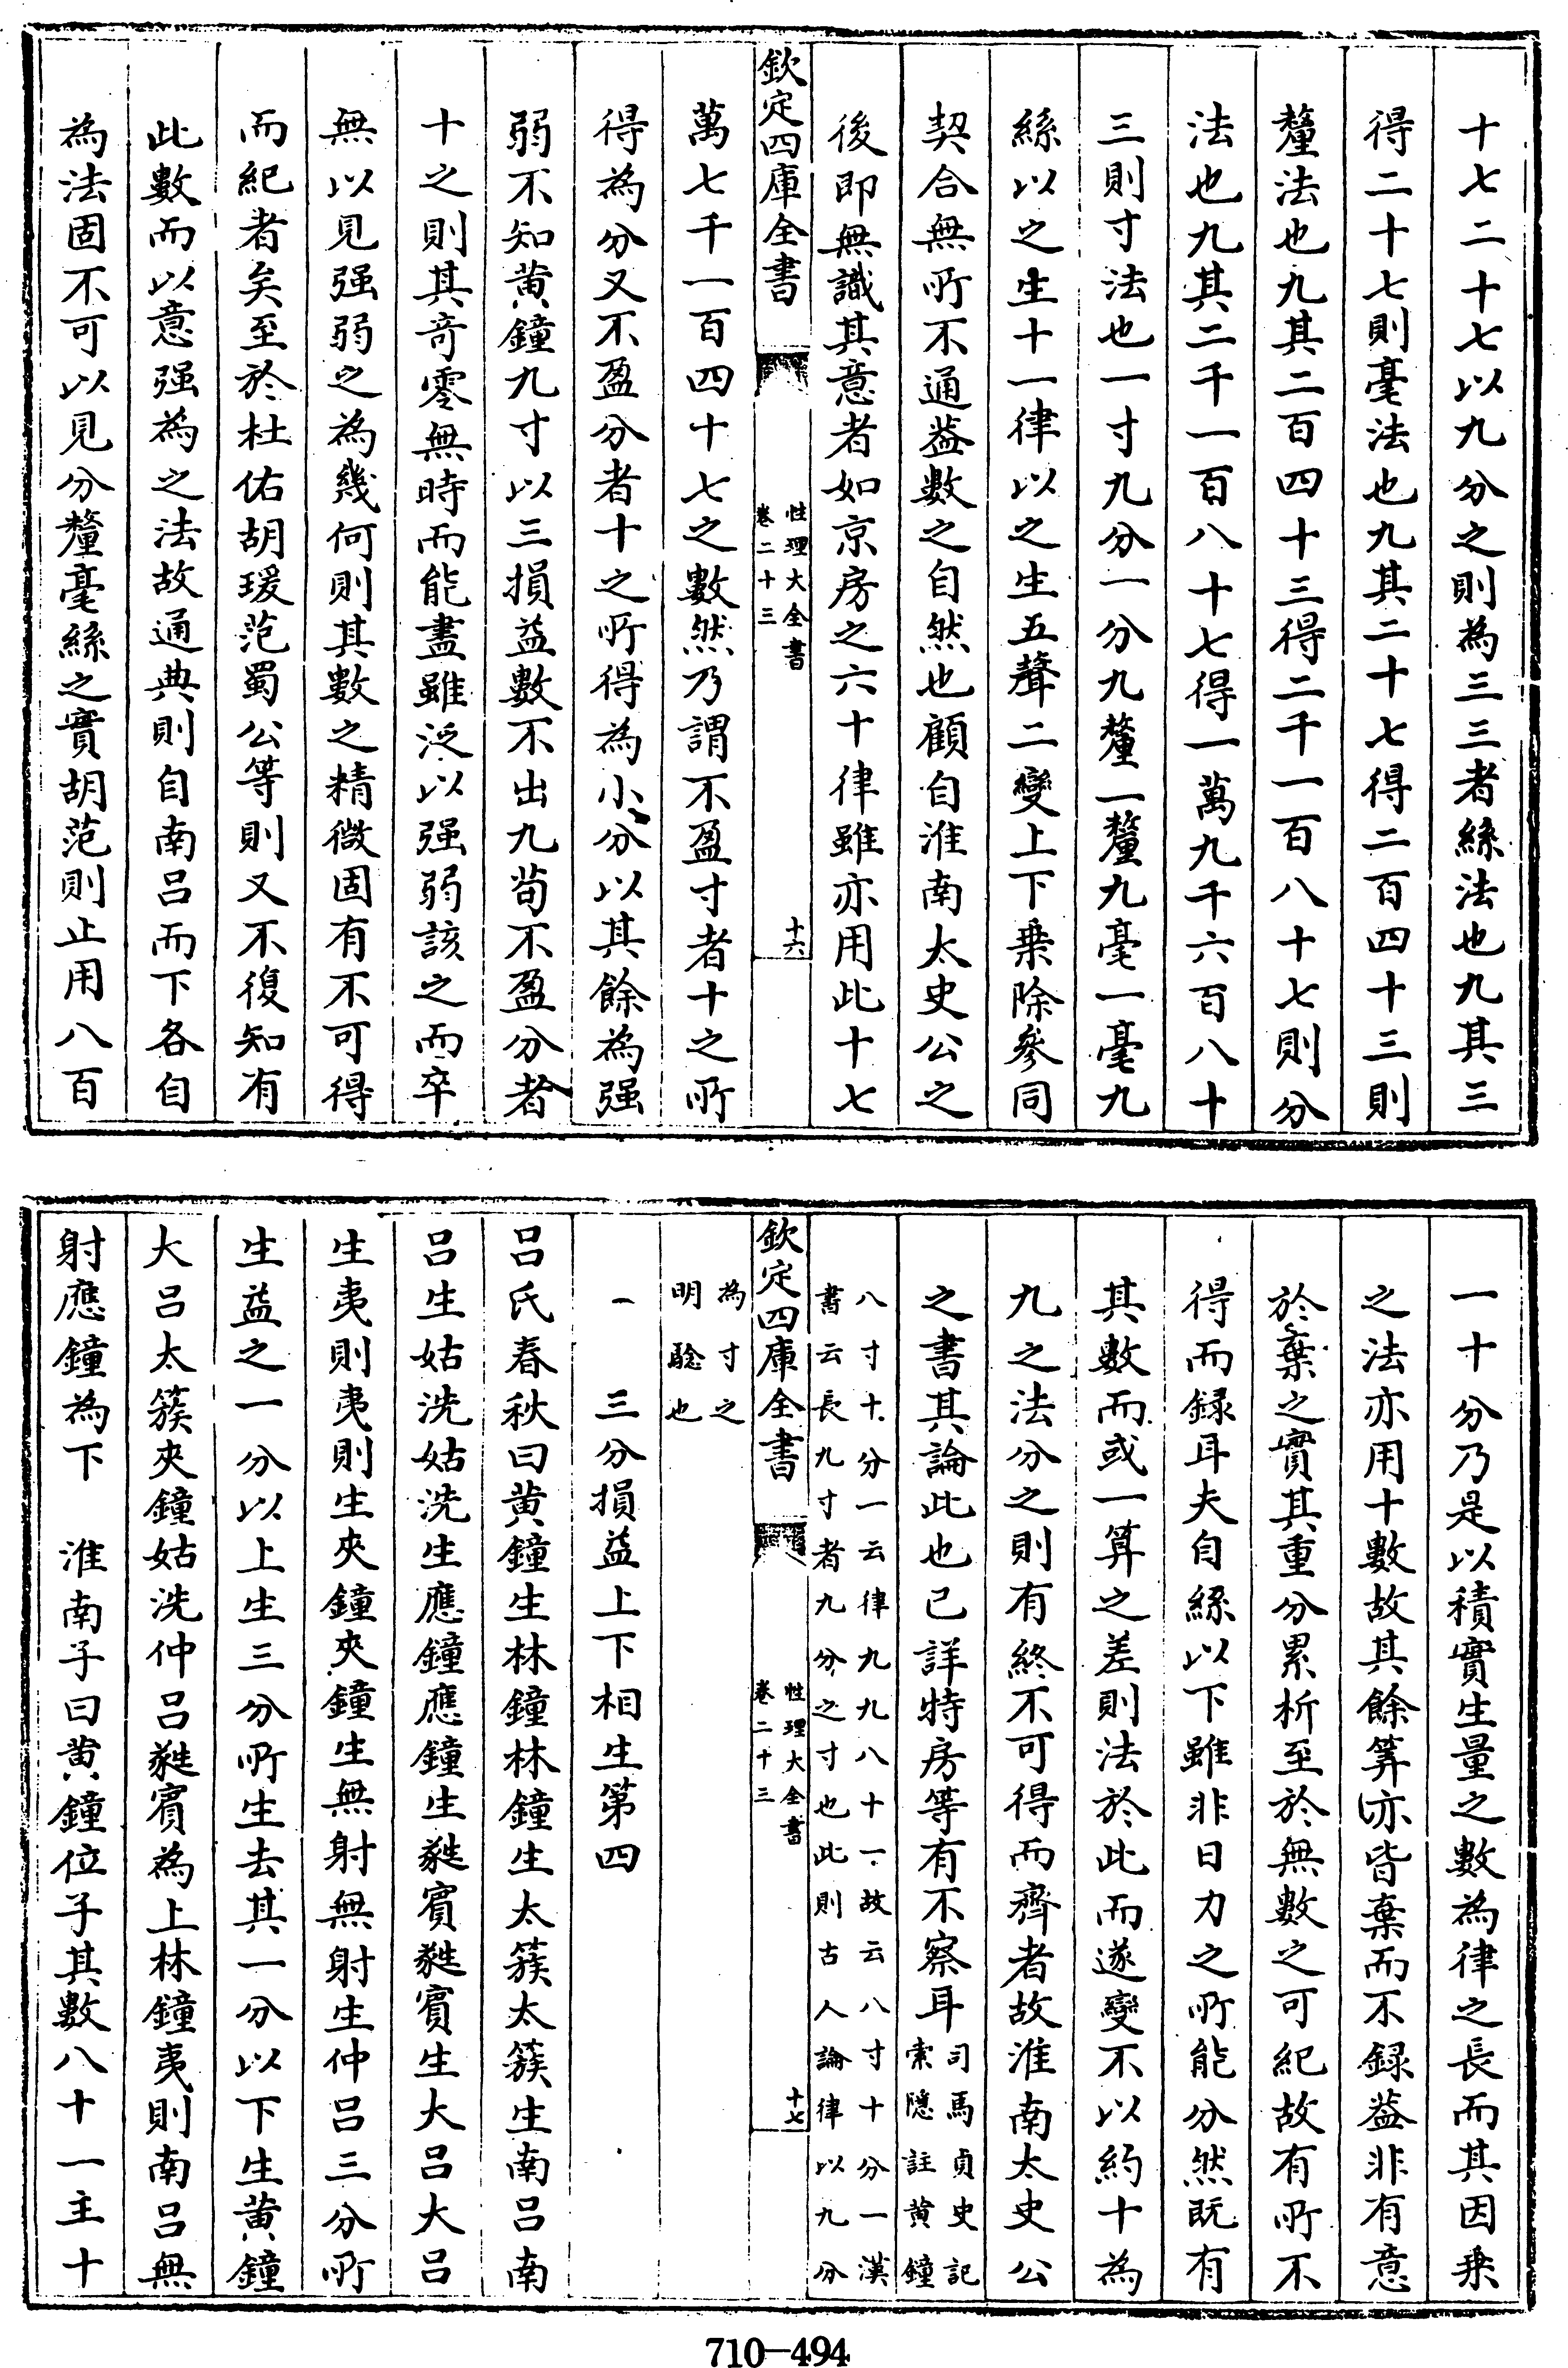 十七二十七以九分之則為三三者絲法也九其三
得二十七則毫法也九其二十七得二百四十三則
釐法也九其二百四十三得二千一百八十七則分
法也九其二千一百八十七得一萬九千六百八十
三則寸法也一寸九分一分九釐一釐九毫一毫九
絲以之生十一律以之生五聲二變上下乗除參同
契合無所不通葢數之自然也顧自淮南太史公之
後即無識其意者如京房之六十律雖亦用此十七
欽定四庫全書
性理大全書
卷二十三
十六
萬七千一百四十七之數然乃謂不盈寸者十之所
得為分又不盈分者十之所得為小分以其餘為强
弱不知黄鐘九寸以三損益數不出九茍不盈分者
十之則其奇零無時而能盡雖泛以强弱該之而卒
無以見强弱之為幾何則其數之精微固有不可得
而紀者矣至於杜佑胡瑗范蜀公等則又不復知有
此數而以意强為之法故通典則自南呂而下各自
為法固不可以見分釐毫絲之實胡范則止用八百
一十分乃是以積實生量之數為律之長而其因乗
之法亦用十數故其餘筭亦皆棄而不録葢非有意
於棄之實其重分累析至於無數之可紀故有所不
得而録耳夫自絲以下雖非日力之所能分然既有
其數而或一算之差則法於此而遂變不以約十為
九之法分之則有終不可得而齊者故淮南太史公
之書其論此也已詳特房等有不察耳司馬貞史記
索隱註黄鐘
八寸十分一云律九九八十一故云八寸十分一漢
書云長九寸者九分之寸也此則古人論律以九分
欽定四庫全書
性理大全書
卷二十三
十七
為寸之
明驗也
一　三分損益上下相生第四
呂氏春秋曰黄鐘生林鐘林鐘生太簇太簇生南呂南
呂生姑洗姑洗生應鐘應鐘生蕤賓蕤賓生大呂大呂
生夷則夷則生夾鐘夾鐘生無射無射生仲呂三分所
生益之一分以上生三分所生去其一分以下生黄鐘
大呂太簇夾鐘姑洗仲呂蕤賓為上林鐘夷則南呂無
射應鐘為下　淮南子曰黄鐘位子其數八十一主十
710-494